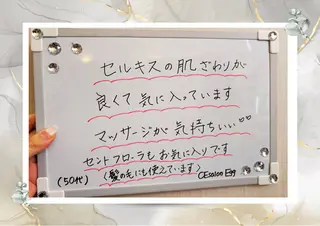 セルキスの肌ざわりが
良くて気に入っています
マッサージが気持ちいい♡♡
セントフローラもお気に入りです
(50代) (髪の毛にも使えています) CEsalon